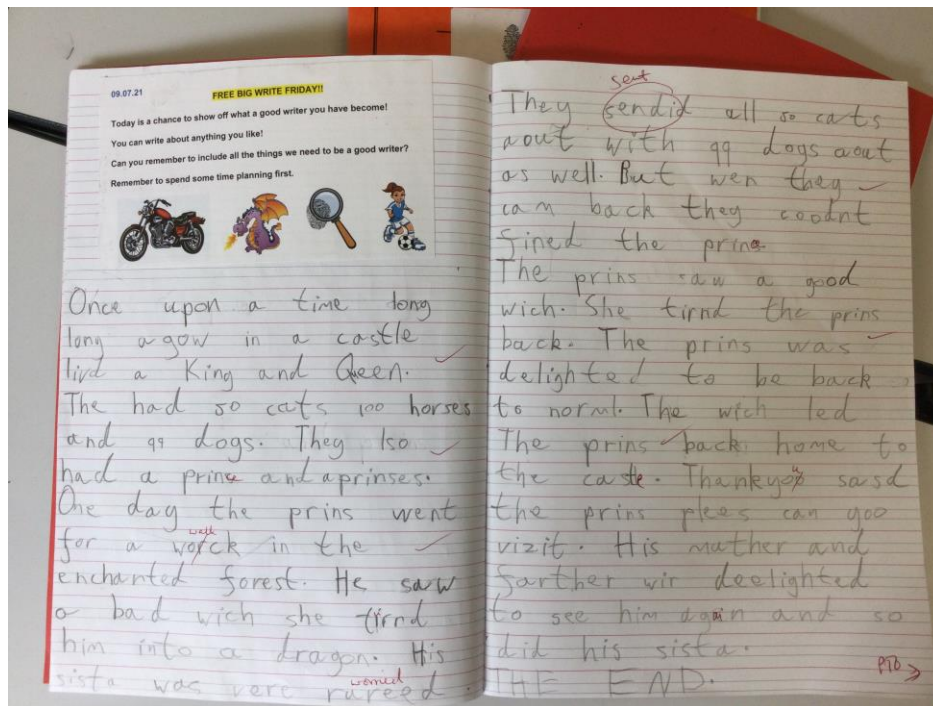 09.07.21
FREE BIG WRITE FRIDAY!!
Today is a chance to show off what a good writer you have become!
You can write about anything you like!
Can you remember to include all the things we need to be a good writer?
Remember to spend some time planning first.
Once upon a time long
long agow in a castle
livd a King and Queen.
The had 50 cats 100 horses
and 99 dogs. They lso
had a prince and aprinses.
One day the prins went
walk
for a worck in the
enchanted forest. He saw
a bad wich she tirnd
him into a dragon. His
worried
sista was vere rureed.
sent
They sendid all 50 cats
aout with 99 dogs aout
as well. But wen they
cam back they coodnt
fined the prins.
The prins saw a good
wich. She tirnd the prins
back. The prins was
delighted to be back
to norml. The wich led
The prins back home to
the caste. Thankyou sasd
the prins plees can yoo
vizit. His mather and
farther wir deelighted
to see him again and so
did his sista.
PTO
THE END.